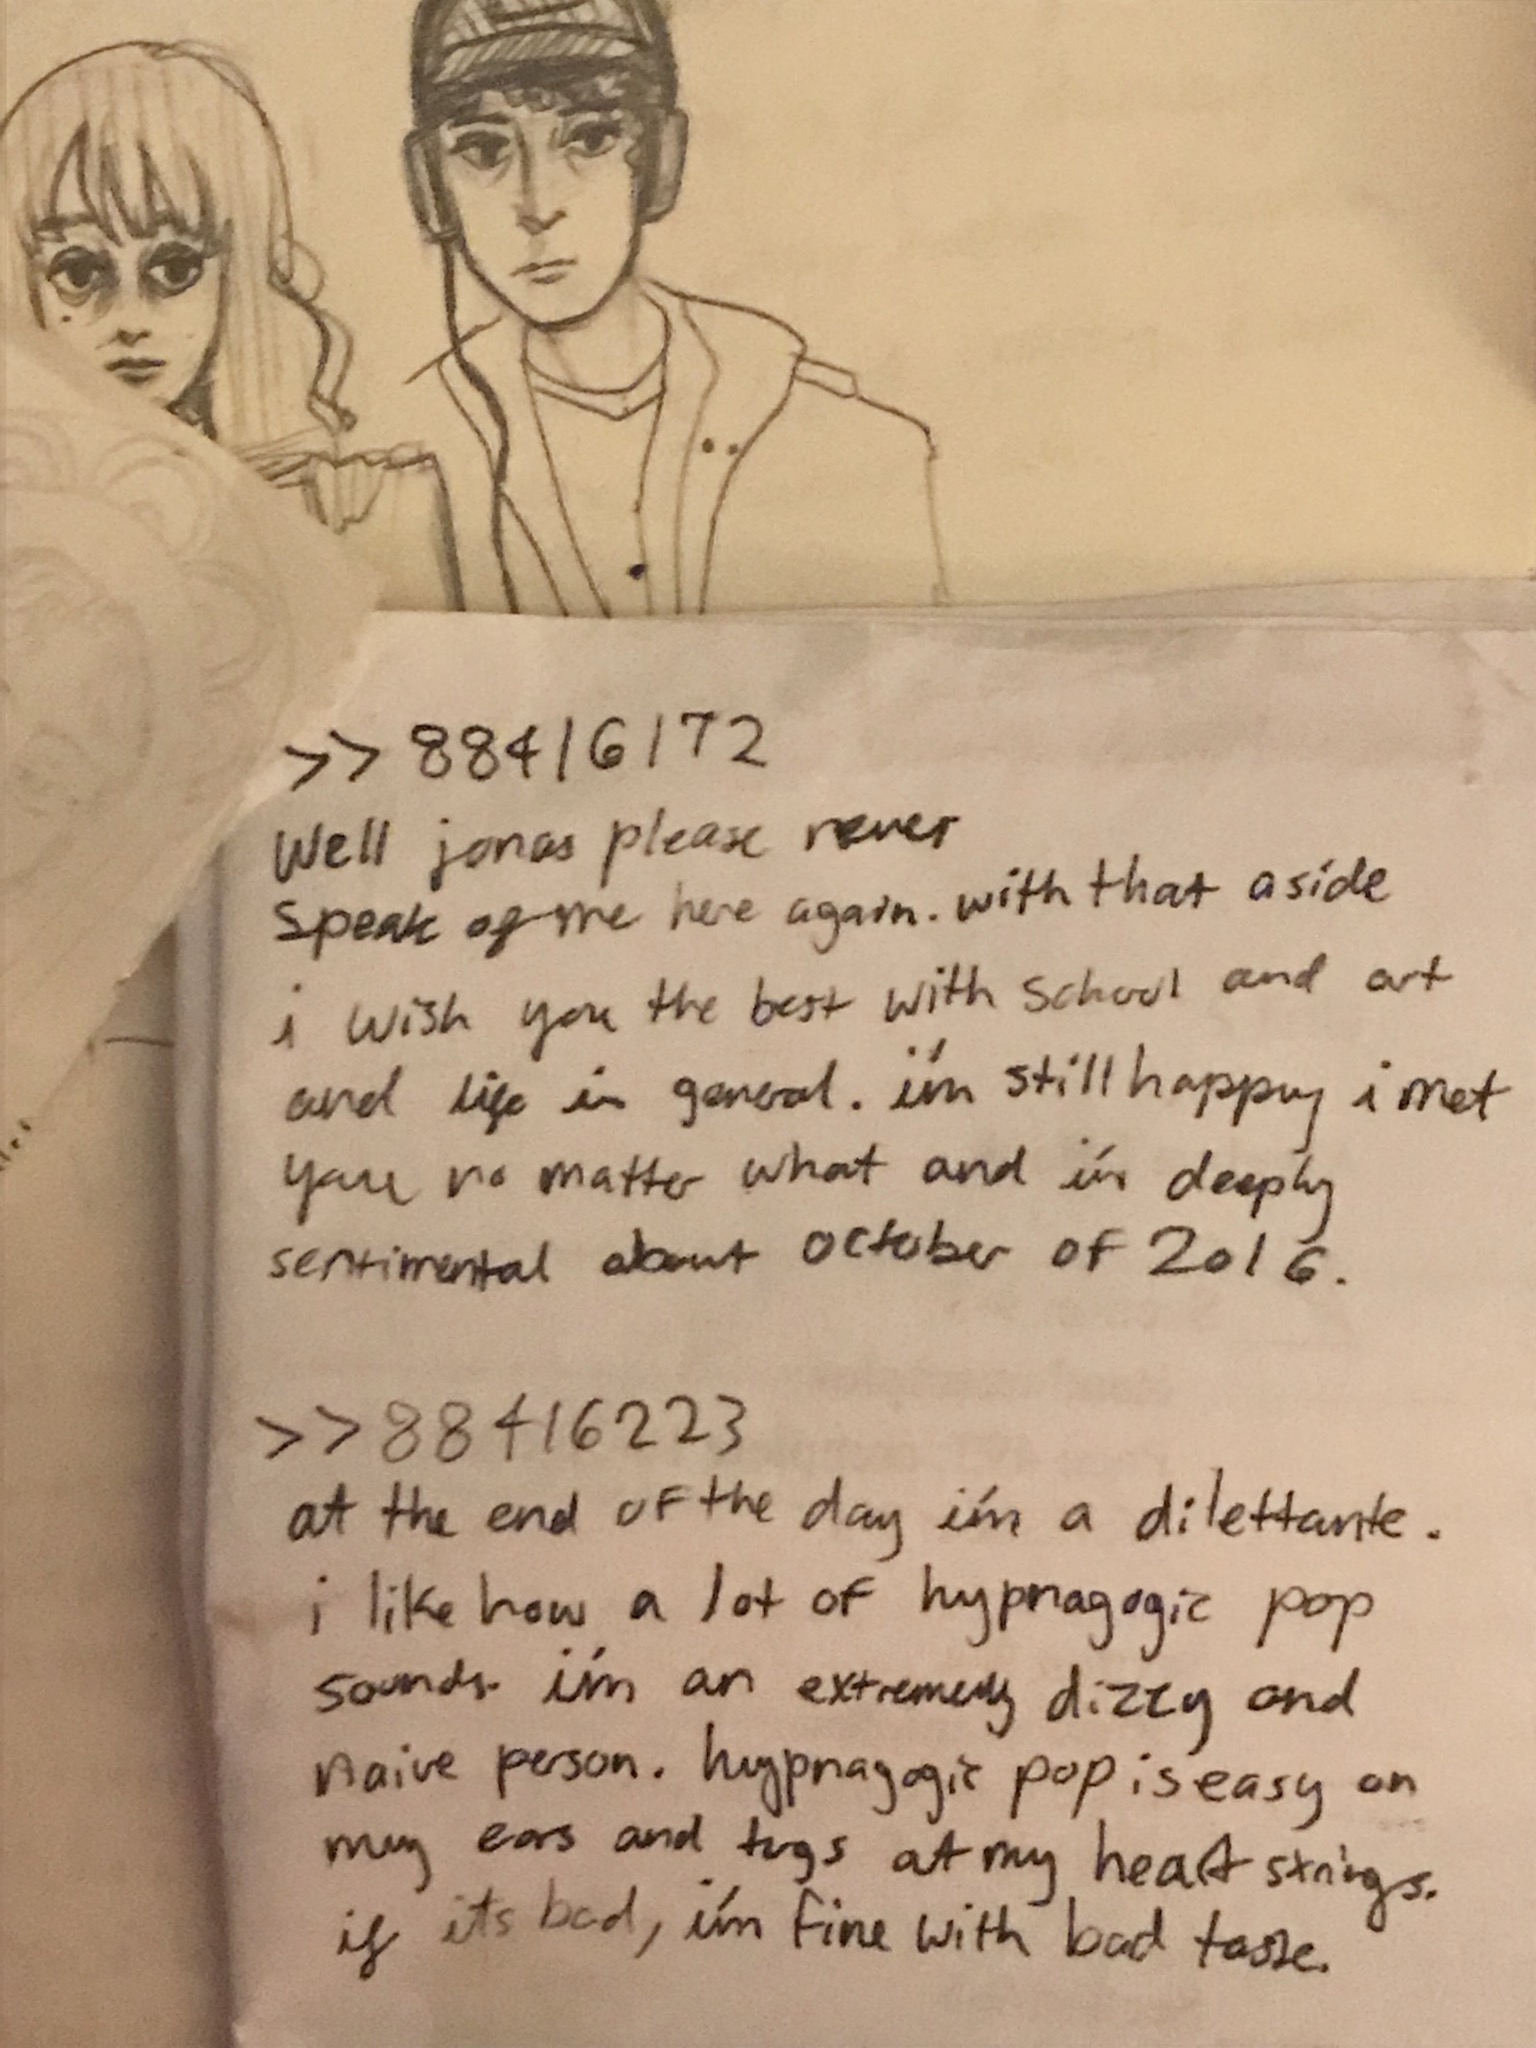 >>88416172
Well jonas please never
speak of me here again. with that aside
i wish you the best with school and art
and life in general. i'm still happy i met
you no matter what and i'm deeply
sentimental about october of 2016.
>>88416223
at the end of the day i'm a dilettante.
i like how a lot of hypnagogic pop
sounds. i'm an extremely dizzy and
naive person. hypnagogic pop is easy on
my ears and tugs at my heart strings.
if its bad, i'm fine with bad taste.